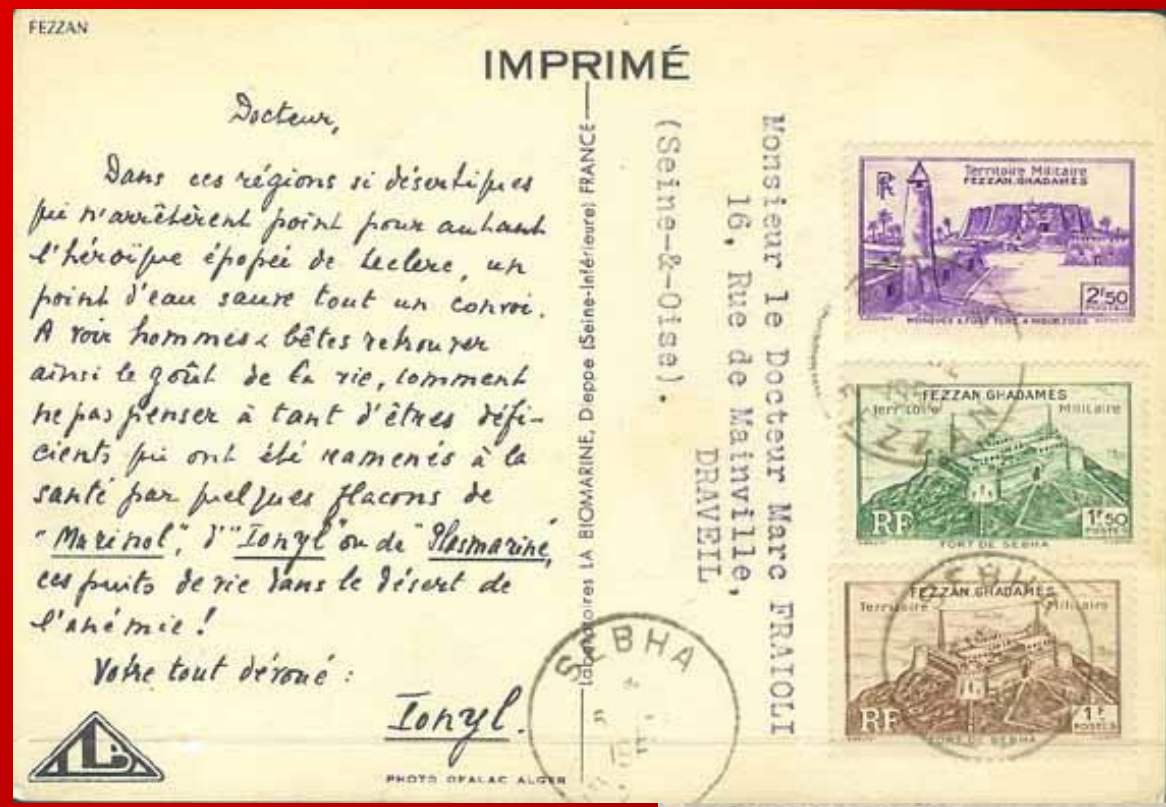 FEZZAN
IMPRIMÉ
Docteur,
Dans ces régions si désertiques
qui n'arrêtèrent point pour autant
l'héroïque épopée de Leclerc, un
point d'eau sauve tout un convoi.
A voir hommes & bêtes retrouver
ainsi le goût de la vie, comment
ne pas penser à tant d'êtres défi-
cients qui ont été ramenés à la
santé par quelques flacons de
"Marinol", d'"Ionyl" ou de "Plasmarine,
ces puits de vie dans le désert de
l'anémie!
Votre tout dévoué :
Ionyl.
PHOTO OFALAC ALGER
Laboratoires LA BIOMARINE, Deppe (Seine-Inférieure) FRANCE
Monsieur le Docteur Marc FRAIOLI
16, Rue de Mainville,
DRAVEIL
(Seine-&-Oise).
RF
Territoire Militaire
FEZZAN.GHADAMÈS
2F50
POSTES
FEZZAN
FEZZAN.GHADAMÈS
Territoire Militaire
RF
1F50
POSTES
FORT DE SEBHA
FEZZAN.GHADAMÈS
Territoire Militaire
RF
1F
POSTES
FORT DE SEBHA
SEBHA
SEBHA